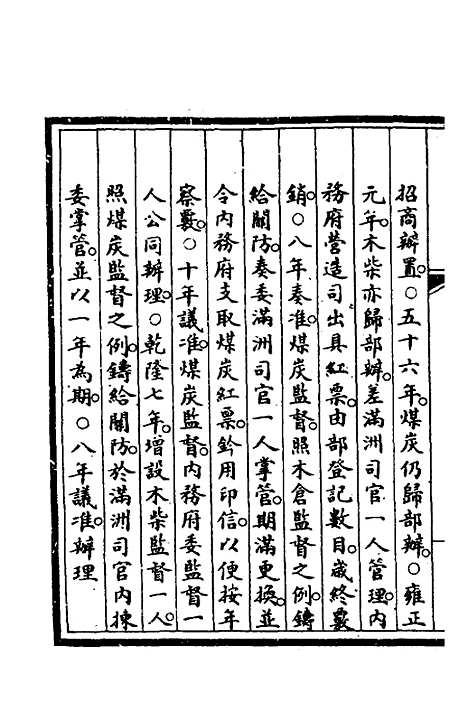 招商辦置。○五十六年。煤炭仍歸部辦。○雍正
元年。木柴亦歸部辦。差滿洲司官一人管理。內
務府營造司出具紅票。由部登記數目。歲終覈
銷。○八年奏准。煤炭監督。照木倉監督之例。鑄
給關防。奏委滿洲司官一人掌管。期滿更換。並
令內務府支取煤炭紅票。鈐用印信。以便按年
察覈。○十年議准。煤炭監督。內務府委監督一
人公同辦理。○乾隆七年。增設木柴監督一人。
照煤炭監督之例。鑄給關防。於滿洲司官內揀
委掌管。並以一年為期。○八年議准。辦理